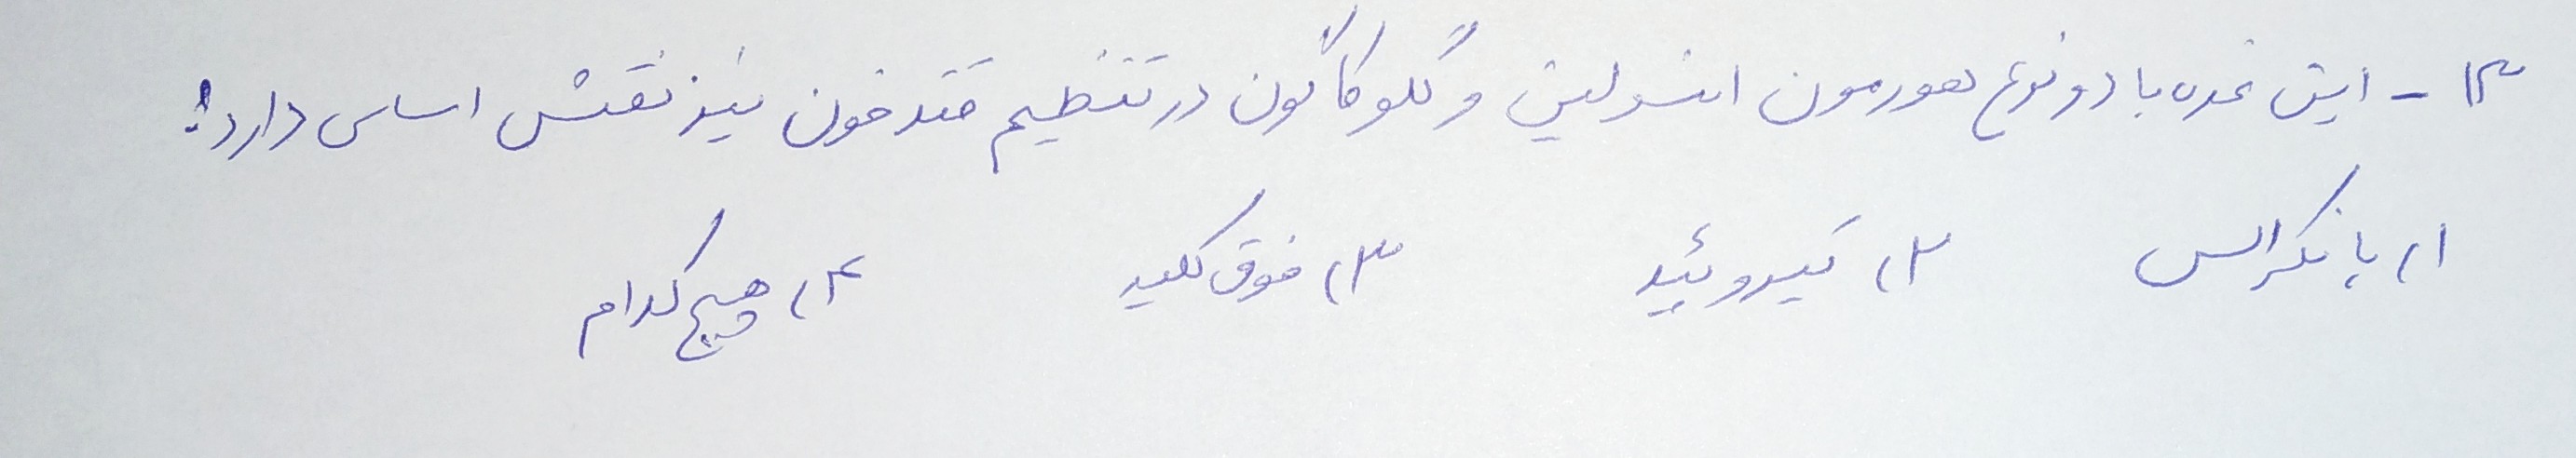 ۱۳- این غده با دو نوع هورمون انسولین و گلوکاگون در تنظیم قند خون نیز نقش اساسی دارد؟
۱) پانکراس ۲) تیروئید ۳) فوق کلیه ۴) هیچ کدام